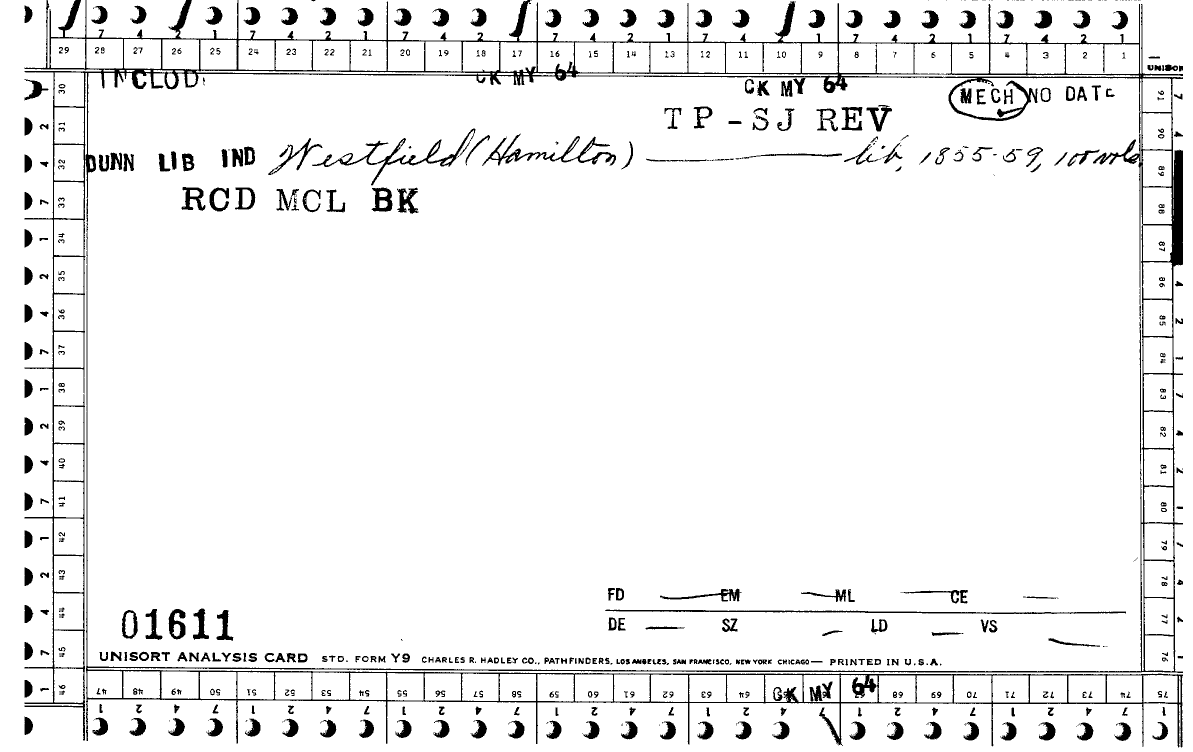 7 4 2 1 7 4 2 1 7 4 2 1 7 4 2 1 7 4 2 1 7 4 2 1 7 4 2 1
29 28 27 26 25 24 23 22 21 20 19 18 17 16 15 14 13 12 11 10 9 8 7 6 5 4 3 2 1
UNISORT
CK MY 64 CK MY 64 MECH NO DATE
TP-SJ REV
DUNN LIB IND Westfield (Hamilton) — lib, 1855-59, 100 vols
RCD MCL BK
30 31 32 33 34 35 36 37 38 39 40 41 42 43 44 45 46
91 90 89 88 87 86 85 84 83 82 81 80 79 78 77 76
FD — EM — ML — CE —
DE — SZ — LD — VS —
01611
UNISORT ANALYSIS CARD STD. FORM Y9 CHARLES R. HADLEY CO., PATHFINDERS, LOS ANGELES, SAN FRANCISCO, NEW YORK CHICAGO — PRINTED IN U.S.A.
47 48 49 50 51 52 53 54 55 56 57 58 59 60 61 62 63 64 CK MY 64 68 69 70 71 72 73 74 75
1 2 4 7 1 2 4 7 1 2 4 7 1 2 4 7 1 2 4 7 1 2 4 7 1 2 4 7 1